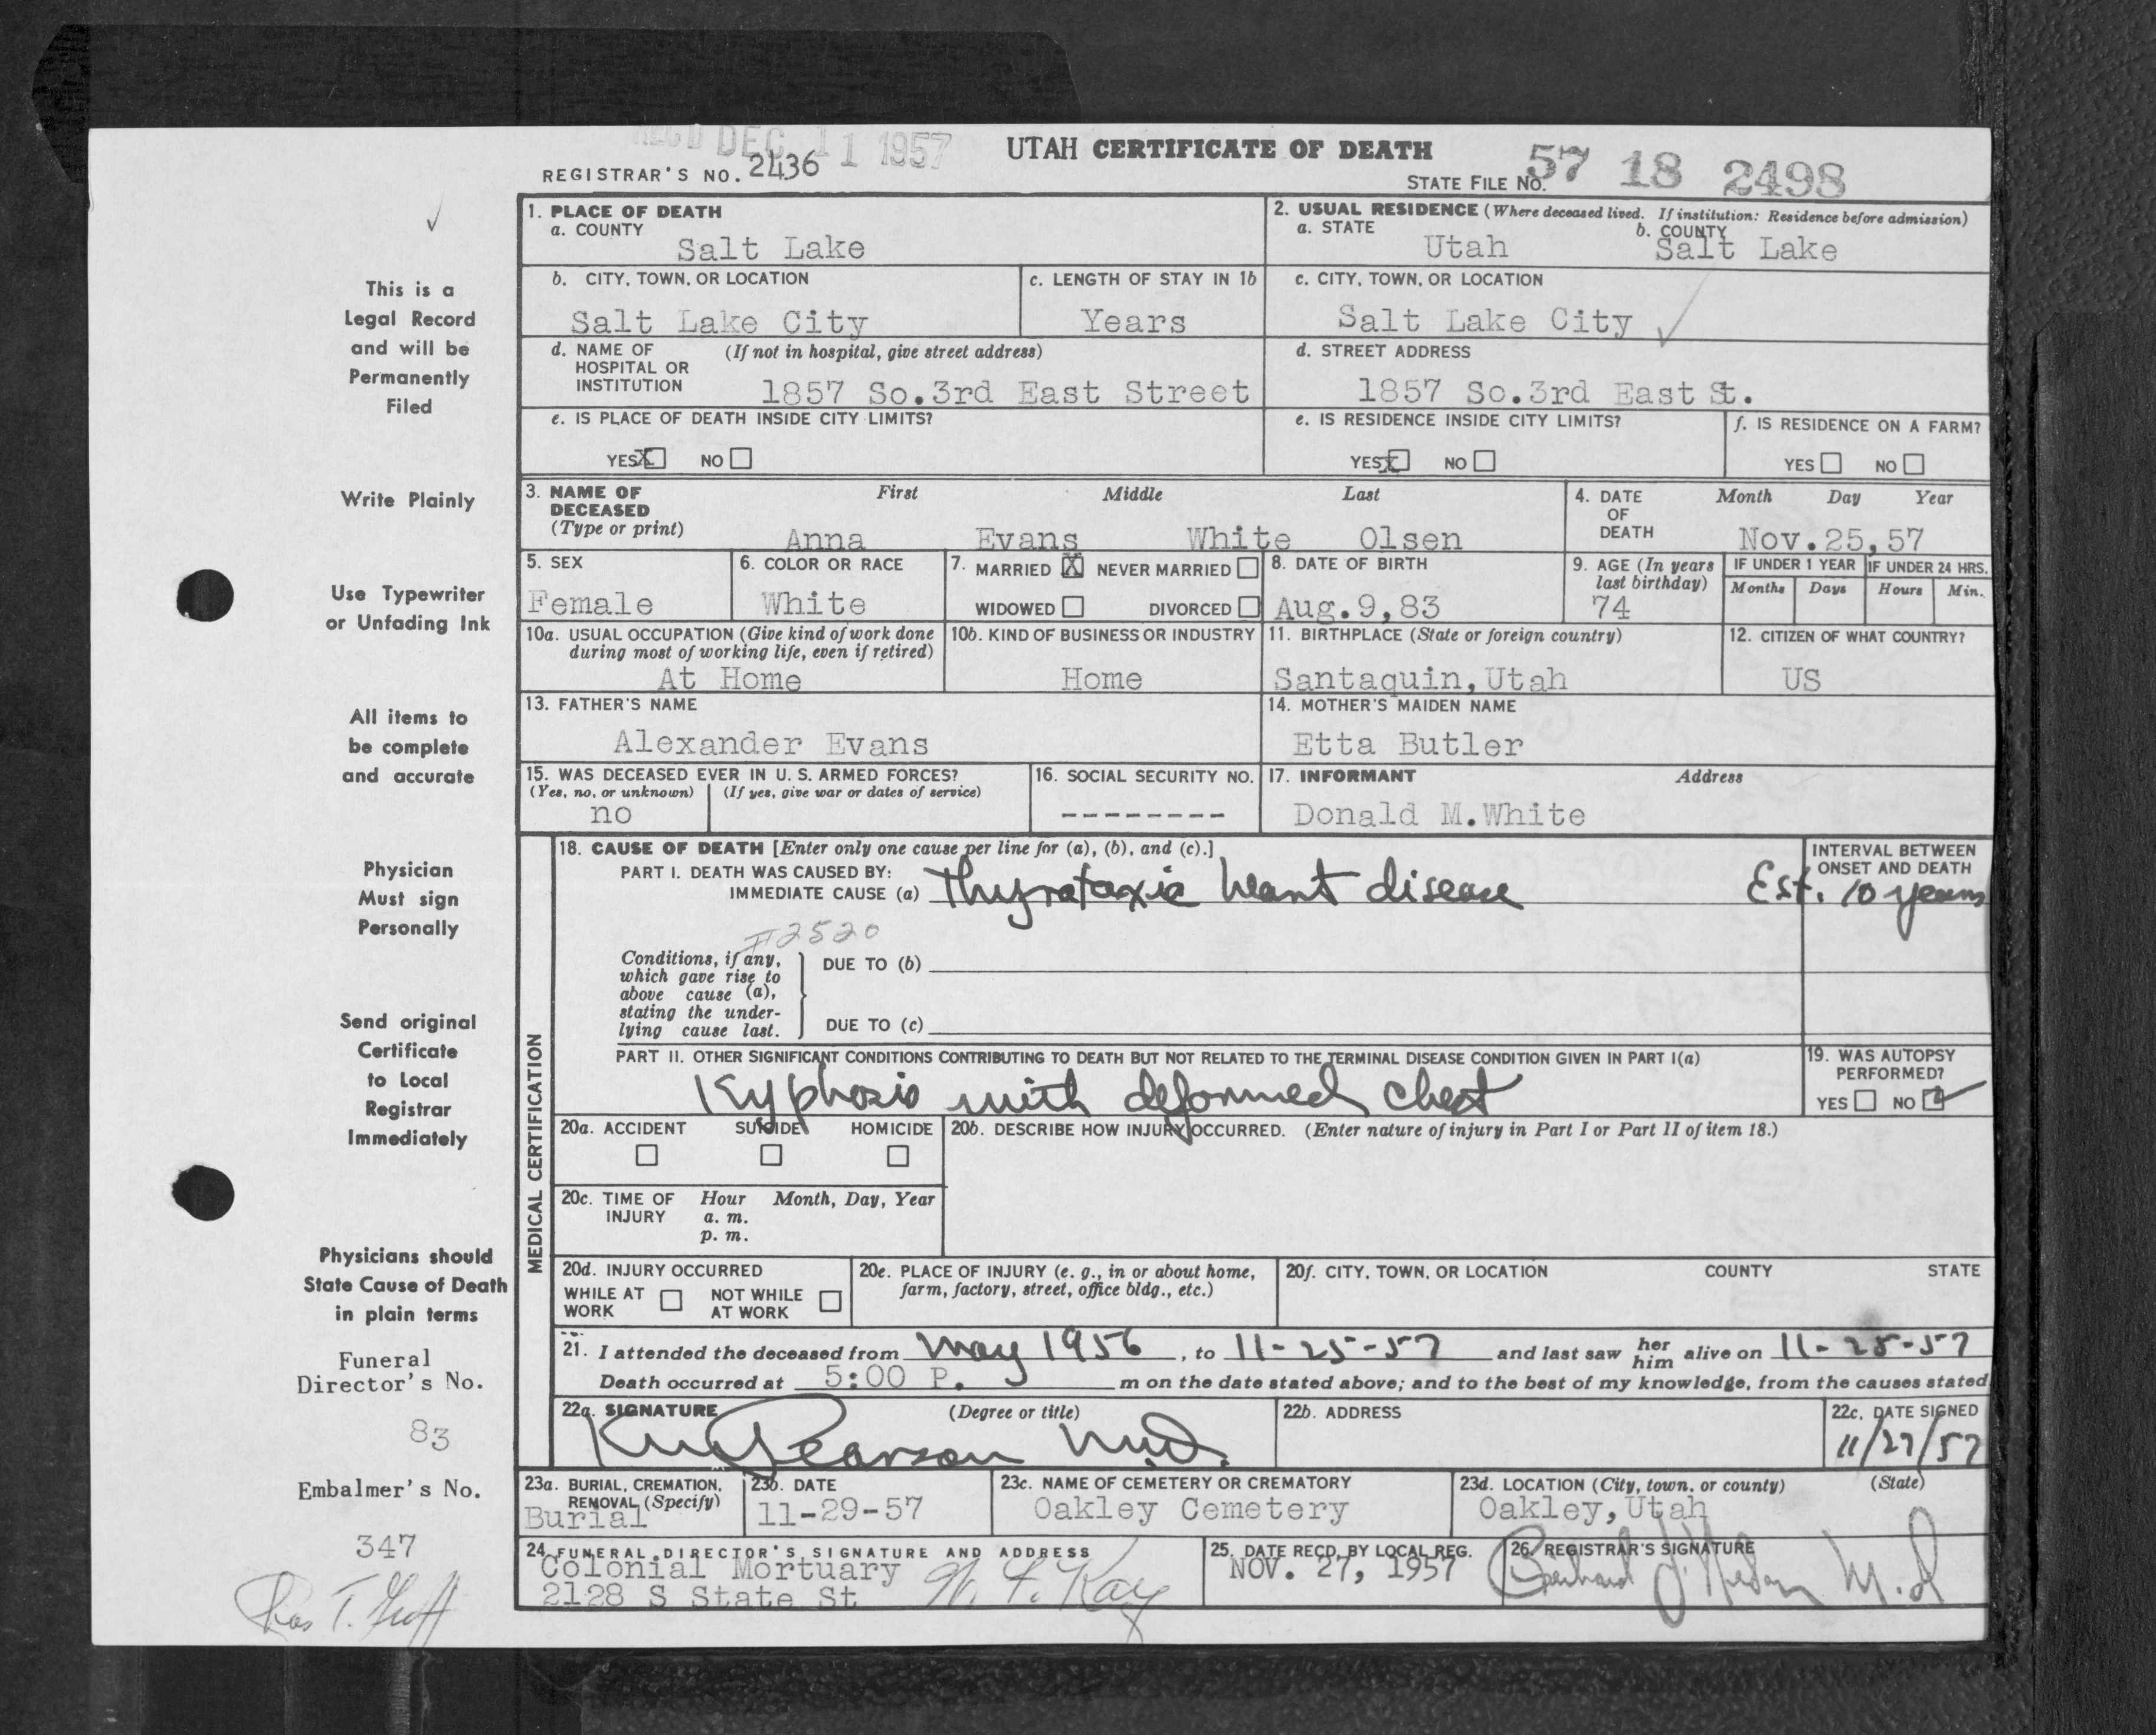 REC'D DEC 11 1957
UTAH CERTIFICATE OF DEATH
REGISTRAR'S NO. 2436
STATE FILE NO. 57 18 2498
1. PLACE OF DEATH
a. COUNTY
Salt Lake
2. USUAL RESIDENCE (Where deceased lived. If institution: Residence before admission)
a. STATE b. COUNTY
Utah Salt Lake
b. CITY, TOWN, OR LOCATION
Salt Lake City
c. LENGTH OF STAY IN 1b
Years
c. CITY, TOWN, OR LOCATION
Salt Lake City
d. NAME OF HOSPITAL OR INSTITUTION (If not in hospital, give street address)
1857 So.3rd East Street
d. STREET ADDRESS
1857 So.3rd East St.
e. IS PLACE OF DEATH INSIDE CITY LIMITS?
YES X NO
e. IS RESIDENCE INSIDE CITY LIMITS?
YES X NO
f. IS RESIDENCE ON A FARM?
YES NO
3. NAME OF DECEASED (Type or print)
First Middle Last
Anna Evans White Olsen
4. DATE OF DEATH Month Day Year
Nov.25,57
5. SEX
Female
6. COLOR OR RACE
White
7. MARRIED X NEVER MARRIED
WIDOWED DIVORCED
8. DATE OF BIRTH
Aug.9,83
9. AGE (In years last birthday)
74
IF UNDER 1 YEAR
Months Days
IF UNDER 24 HRS.
Hours Min.
10a. USUAL OCCUPATION (Give kind of work done during most of working life, even if retired)
At Home
10b. KIND OF BUSINESS OR INDUSTRY
Home
11. BIRTHPLACE (State or foreign country)
Santaquin,Utah
12. CITIZEN OF WHAT COUNTRY?
US
13. FATHER'S NAME
Alexander Evans
14. MOTHER'S MAIDEN NAME
Etta Butler
15. WAS DECEASED EVER IN U. S. ARMED FORCES?
(Yes, no, or unknown) (If yes, give war or dates of service)
no
16. SOCIAL SECURITY NO.
--------
17. INFORMANT Address
Donald M.White
MEDICAL CERTIFICATION
18. CAUSE OF DEATH [Enter only one cause per line for (a), (b), and (c).]
PART I. DEATH WAS CAUSED BY:
IMMEDIATE CAUSE (a) Thyrotoxic heart disease
INTERVAL BETWEEN ONSET AND DEATH
Est. 10 years
2520
Conditions, if any, which gave rise to above cause (a), stating the underlying cause last.
DUE TO (b)
DUE TO (c)
PART II. OTHER SIGNIFICANT CONDITIONS CONTRIBUTING TO DEATH BUT NOT RELATED TO THE TERMINAL DISEASE CONDITION GIVEN IN PART I(a)
Kyphosis with deformed chest
19. WAS AUTOPSY PERFORMED?
YES NO ✓
20a. ACCIDENT SUICIDE HOMICIDE
20b. DESCRIBE HOW INJURY OCCURRED. (Enter nature of injury in Part I or Part II of item 18.)
20c. TIME OF INJURY Hour Month, Day, Year
a. m.
p. m.
20d. INJURY OCCURRED
WHILE AT WORK NOT WHILE AT WORK
20e. PLACE OF INJURY (e. g., in or about home, farm, factory, street, office bldg., etc.)
20f. CITY, TOWN, OR LOCATION COUNTY STATE
21. I attended the deceased from May 1956, to 11-25-57 and last saw her him alive on 11-25-57
Death occurred at 5:00 P. m on the date stated above; and to the best of my knowledge, from the causes stated
22a. SIGNATURE (Degree or title)
Pearson M.D.
22b. ADDRESS
22c. DATE SIGNED
11/27/57
23a. BURIAL, CREMATION, REMOVAL (Specify)
Burial
23b. DATE
11-29-57
23c. NAME OF CEMETERY OR CREMATORY
Oakley Cemetery
23d. LOCATION (City, town, or county) (State)
Oakley,Utah
24. FUNERAL DIRECTOR'S SIGNATURE AND ADDRESS
Colonial Mortuary
2128 S State St
Kay
25. DATE RECD. BY LOCAL REG.
NOV. 27, 1957
26. REGISTRAR'S SIGNATURE
M.D
This is a
Legal Record
and will be
Permanently
Filed
Write Plainly
Use Typewriter
or Unfading Ink
All items to
be complete
and accurate
Physician
Must sign
Personally
Send original
Certificate
to Local
Registrar
Immediately
Physicians should
State Cause of Death
in plain terms
Funeral
Director's No.
83
Embalmer's No.
347